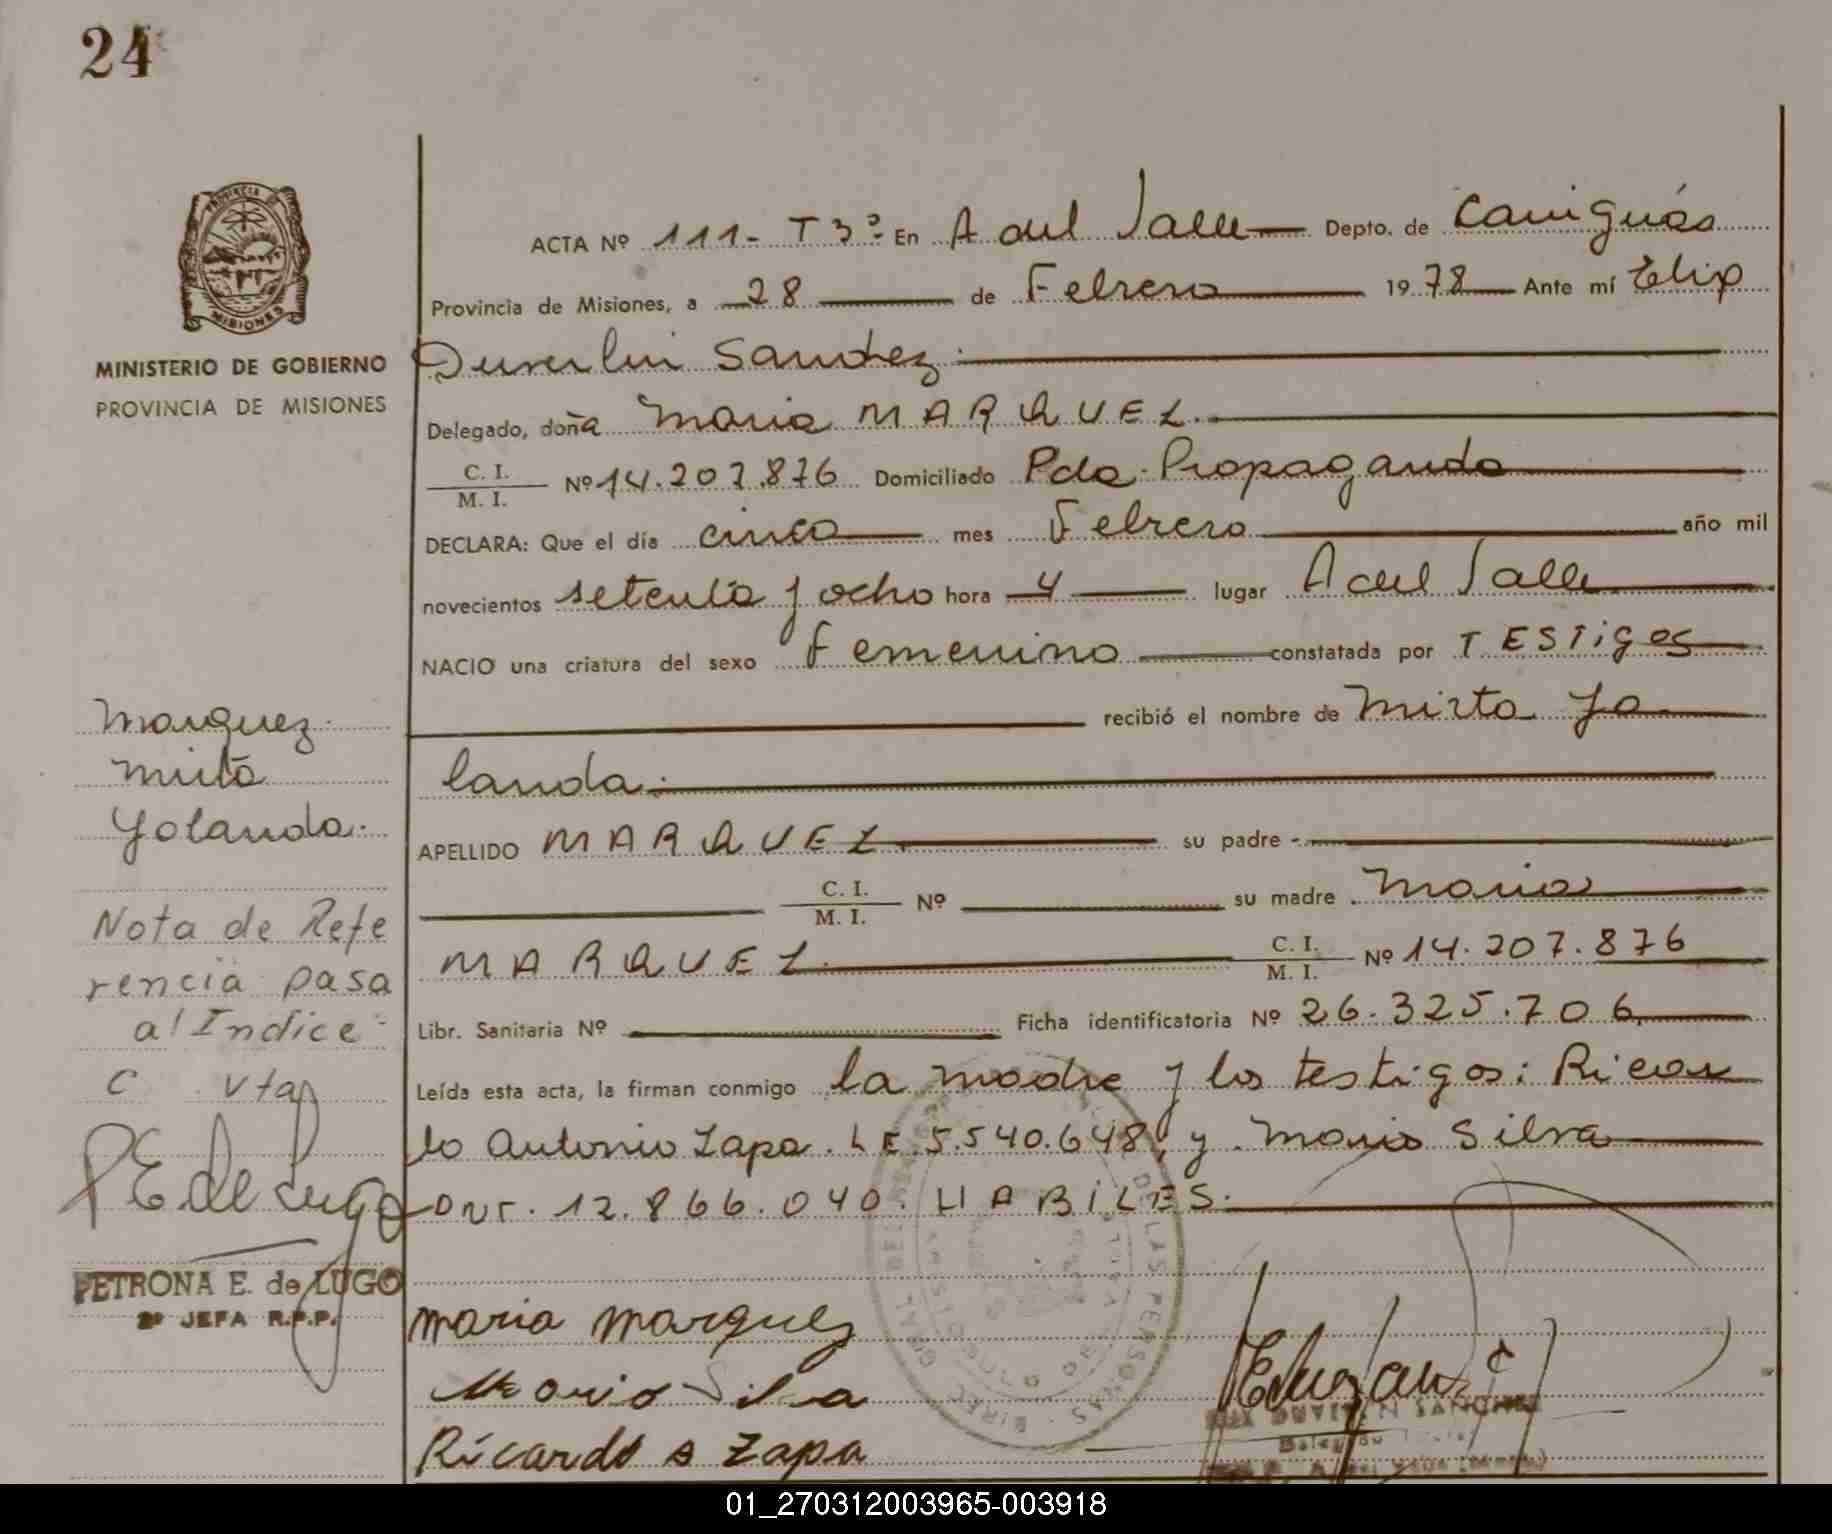 24
PROVINCIA DE
MISIONES
MINISTERIO DE GOBIERNO
PROVINCIA DE MISIONES
ACTA Nº 111- T 3º En A del Valle Depto. de Cainguás
Provincia de Misiones, a 28 de Febrero 1978 Ante mí Elix
Duverlin Sanchez
Delegado, doña Maria MARQUEZ.
C. I.
M. I. Nº 14.207.876 Domiciliado Pda. Propaganda
DECLARA: Que el día cinco mes Febrero año mil
novecientos setenta y ocho hora 4 lugar A del Valle
NACIO una criatura del sexo Femenino constatada por TESTigos
recibió el nombre de Mirta Yo
landa.
APELLIDO MARQUEZ su padre -
C. I.
M. I. Nº su madre Maria
MARQUEZ. C. I.
M. I. Nº 14.207.876
Libr. Sanitaria Nº Ficha identificatoria Nº 26.325.706
Leída esta acta, la firman conmigo la madre y los testigos: Ricar
do Antonio Zapa. LE.5.540.648, y Mario Silva
DNI. 12.866.040. HABILES.
Marquez
Mirta
Yolanda.
Nota de Refe
rencia pasa
al Indice
C vta
PE de Lugo
PETRONA E. de LUGO
2ª JEFA R.P.P.
Maria Marquez
Mario Silva
Ricardo A Zapa
DE LAS PERSONAS
01_270312003965-003918